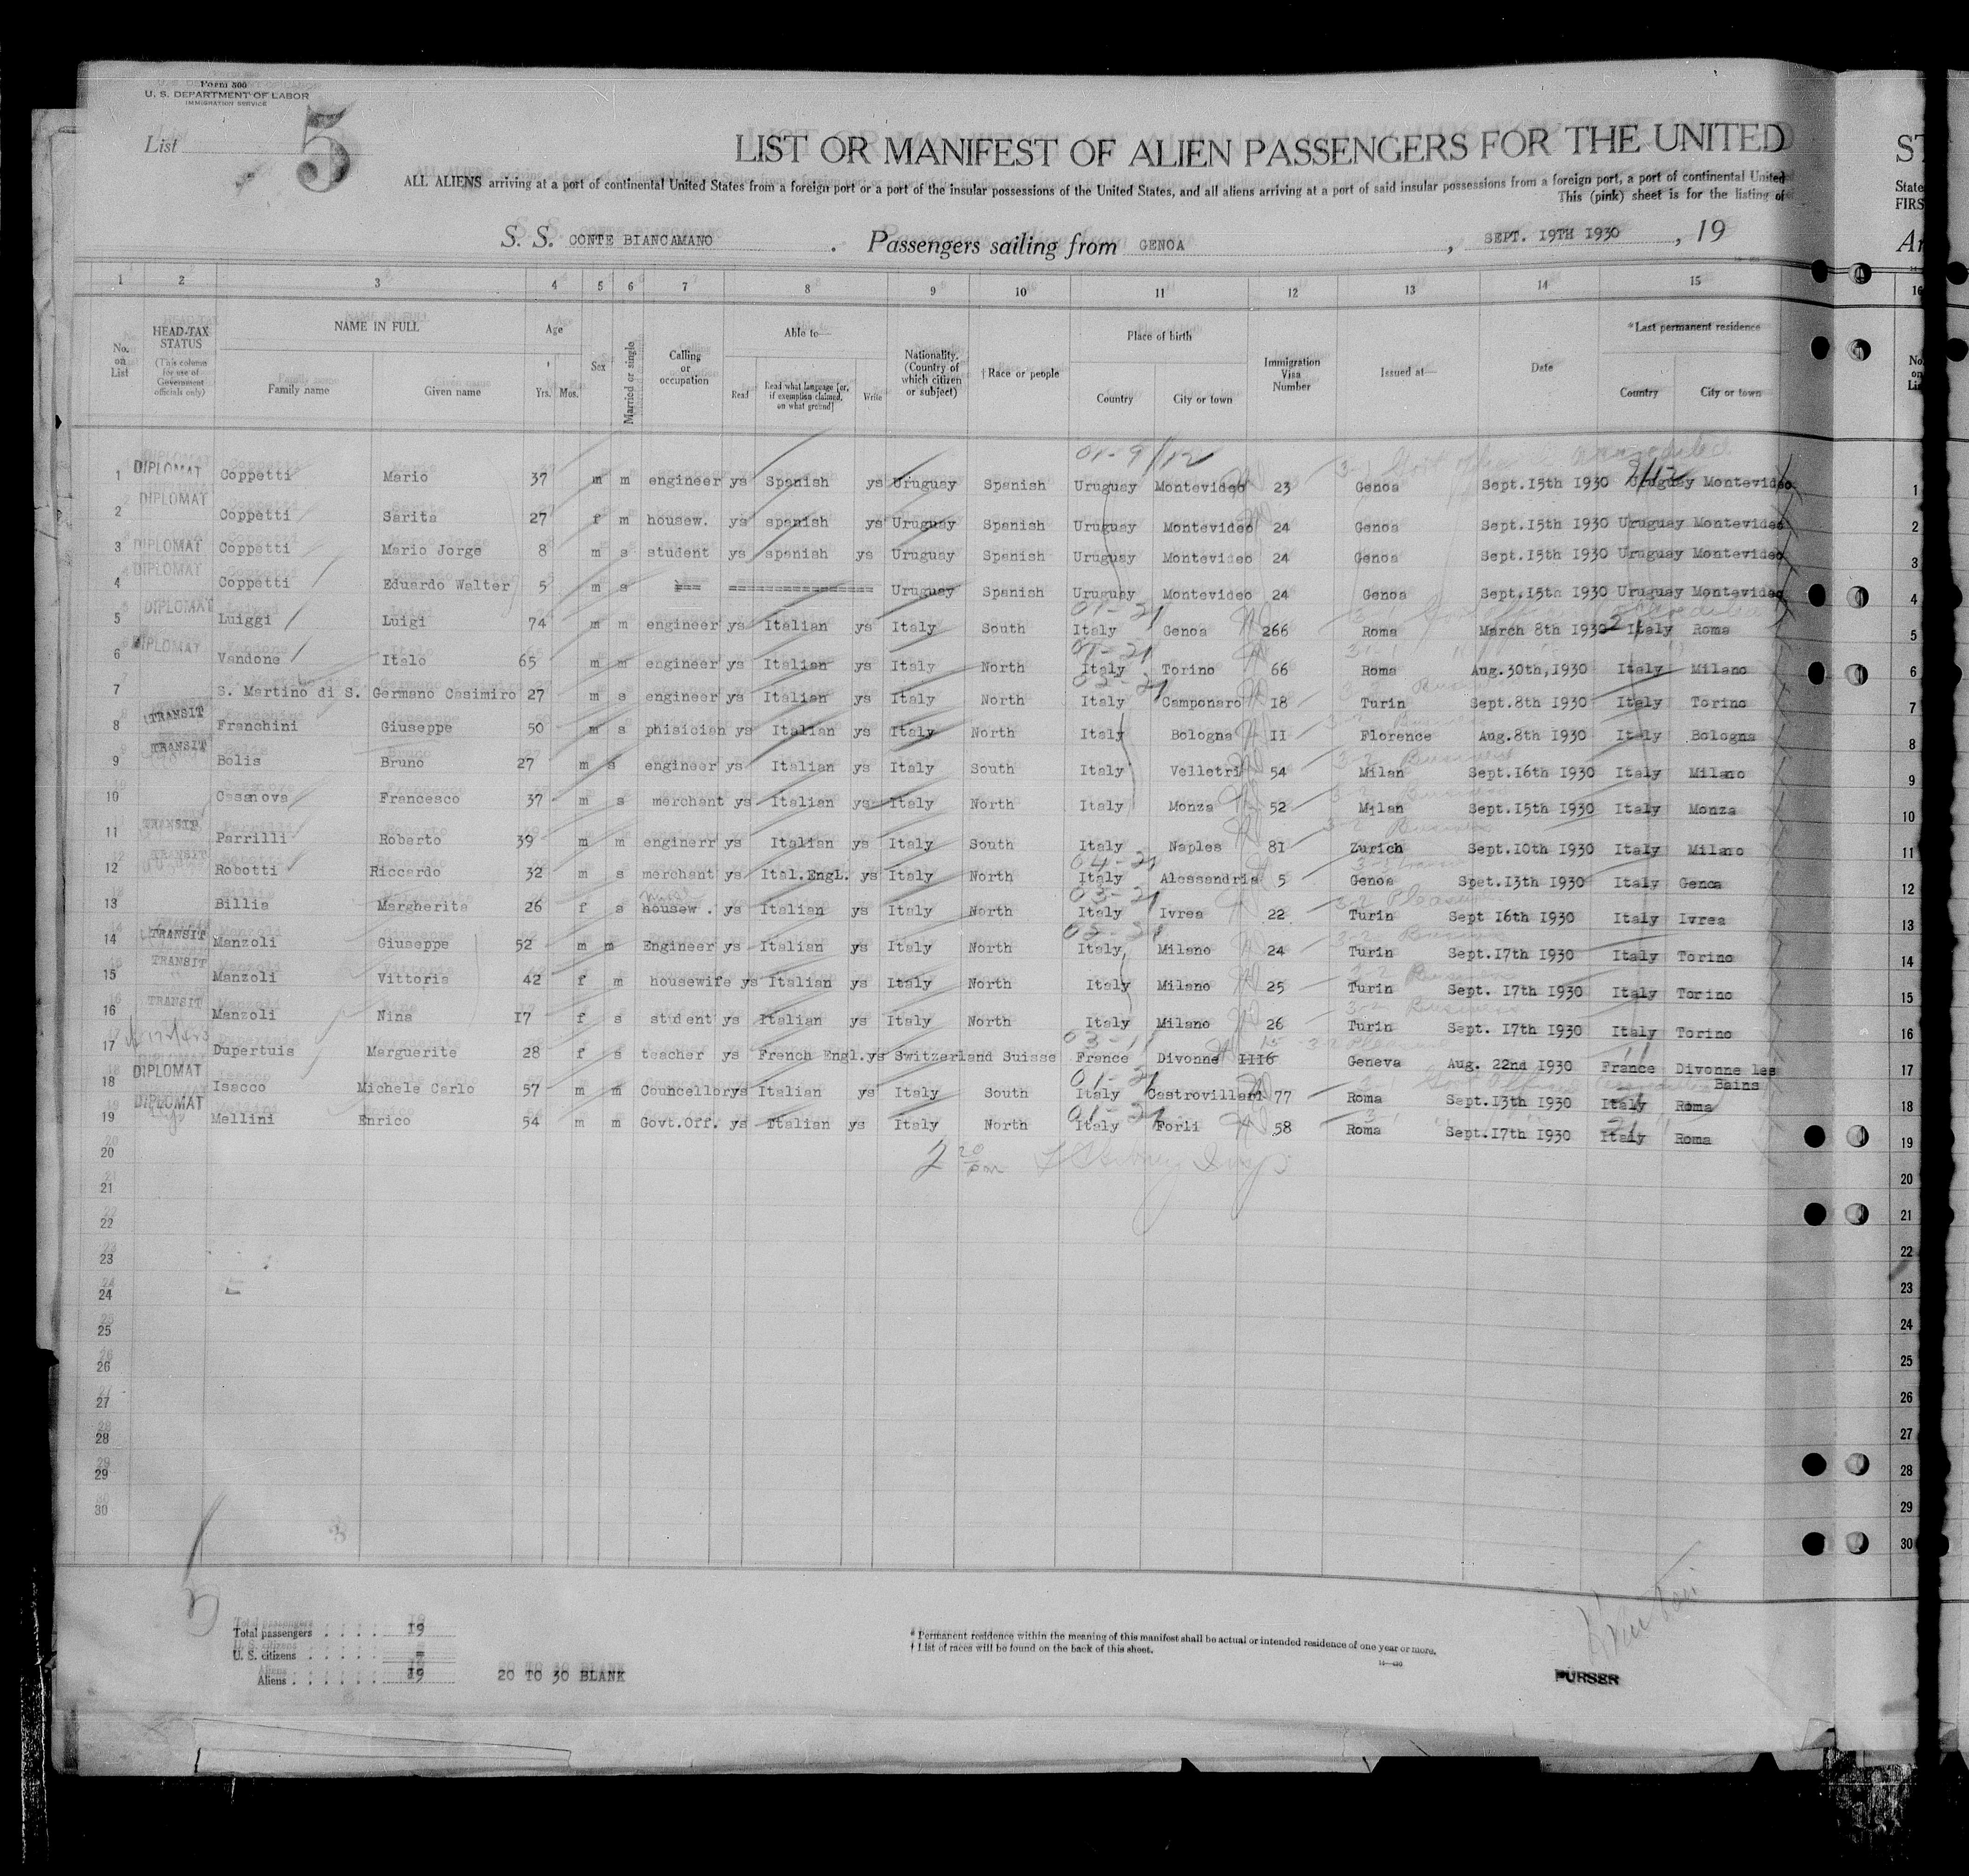 Form 500
U. S. DEPARTMENT OF LABOR
IMMIGRATION SERVICE
List 5
LIST OR MANIFEST OF ALIEN PASSENGERS FOR THE UNITED
ST
ALL ALIENS arriving at a port of continental United States from a foreign port or a port of the insular possessions of the United States, and all aliens arriving at a port of said insular possessions from a foreign port, a port of continental United
State
This (pink) sheet is for the listing of
FIRS
S. S. CONTE BIANCAMANO . Passengers sailing from GENOA , SEPT. 19TH 1930 , 19
1 2 3 4 5 6 7 8 9 10 11 12 13 14 15 16
No. on List
HEAD-TAX STATUS
(This column for use of Government officials only)
NAME IN FULL
Family name Given name
Age
Yrs. Mos.
Sex
Married or single
Calling or occupation
Able to—
Read
Read what language [or, if exemption claimed, on what ground]
Write
Nationality. (Country of which citizen or subject)
†Race or people
Place of birth
Country City or town
Immigration Visa Number
Issued at—
Date
*Last permanent residence
Country City or town
01-9/12
1 DIPLOMAT Coppetti Mario 37 m m engineer ys Spanish ys Uruguay Spanish Uruguay Montevideo 23 Genoa Sept.15th 1930 Uruguay Montevideo 1
2 DIPLOMAT Coppetti Sarita 27 f m housew. ys spanish ys Uruguay Spanish Uruguay Montevideo 24 Genoa Sept.15th 1930 Uruguay Montevideo 2
3 DIPLOMAT Coppetti Mario Jorge 8 m s student ys spanish ys Uruguay Spanish Uruguay Montevideo 24 Genoa Sept.15th 1930 Uruguay Montevideo 3
4 DIPLOMAT Coppetti Eduardo Walter 5 m s Uruguay Spanish Uruguay Montevideo 24 Genoa Sept.15th 1930 Uruguay Montevideo 4
01-21
5 DIPLOMAT Luiggi Luigi 74 m m engineer ys Italian ys Italy South Italy Genoa 266 Roma March 8th 1930 Italy Roma 5
01-21
6 DIPLOMAT Vandone Italo 65 m m engineer ys Italian ys Italy North Italy Torino 66 Roma Aug.30th,1930 Italy Milano 6
7 S. Martino di S. Germano Casimiro 27 m s engineer ys Italian ys Italy North Italy Camponaro 18 Turin Sept.8th 1930 Italy Torino 7
8 TRANSIT Franchini Giuseppe 50 m s phisician ys Italian ys Italy North Italy Bologna II Florence Aug.8th 1930 Italy Bologna 8
9 TRANSIT Bolis Bruno 27 m s engineer ys Italian ys Italy South Italy Velletri 54 Milan Sept.16th 1930 Italy Milano 9
10 Casanova Francesco 37 m s merchant ys Italian ys Italy North Italy Monza 52 Milan Sept.15th 1930 Italy Monza 10
11 TRANSIT Parrilli Roberto 39 m m enginerr ys Italian ys Italy South Italy Naples 81 Zurich Sept.10th 1930 Italy Milano 11
04-21
12 TRANSIT Robotti Riccardo 32 m s merchant ys Ital.Engl. ys Italy North Italy Alessandria 5 Genoa Spet.13th 1930 Italy Genoa 12
03-21
13 Billia Margherita 26 f s housew . ys Italian ys Italy North Italy Ivrea 22 Turin Sept 16th 1930 Italy Ivrea 13
14 TRANSIT Manzoli Giuseppe 52 m m Engineer ys Italian ys Italy North Italy Milano 24 Turin Sept.17th 1930 Italy Torino 14
15 TRANSIT Manzoli Vittoria 42 f m housewife ys Italian ys Italy North Italy Milano 25 Turin Sept. 17th 1930 Italy Torino 15
16 TRANSIT Manzoli Nina 17 f s student ys Italian ys Italy North Italy Milano 26 Turin Sept. 17th 1930 Italy Torino 16
17 Dupertuis Marguerite 28 f s teacher ys French Engl.ys Switzerland Suisse France Divonne III6 Geneva Aug. 22nd 1930 France Divonne les Bains 17
01-21
18 DIPLOMAT Isacco Michele Carlo 57 m m Councellor ys Italian ys Italy South Italy Castrovillari 77 Roma Sept.13th 1930 Italy Roma 18
01-21
19 DIPLOMAT Mellini Enrico 54 m m Govt.Off. ys Italian ys Italy North Italy Forli 58 Roma Sept.17th 1930 Italy Roma 19
20 2 20 pm 20
21 21
22 22
23 23
24 24
25 25
26 26
27 27
28 28
29 29
30 30
Total passengers 19
U. S. citizens
Aliens 19
20 TO 30 BLANK
* Permanent residence within the meaning of this manifest shall be actual or intended residence of one year or more.
† List of races will be found on the back of this sheet.
PURSER